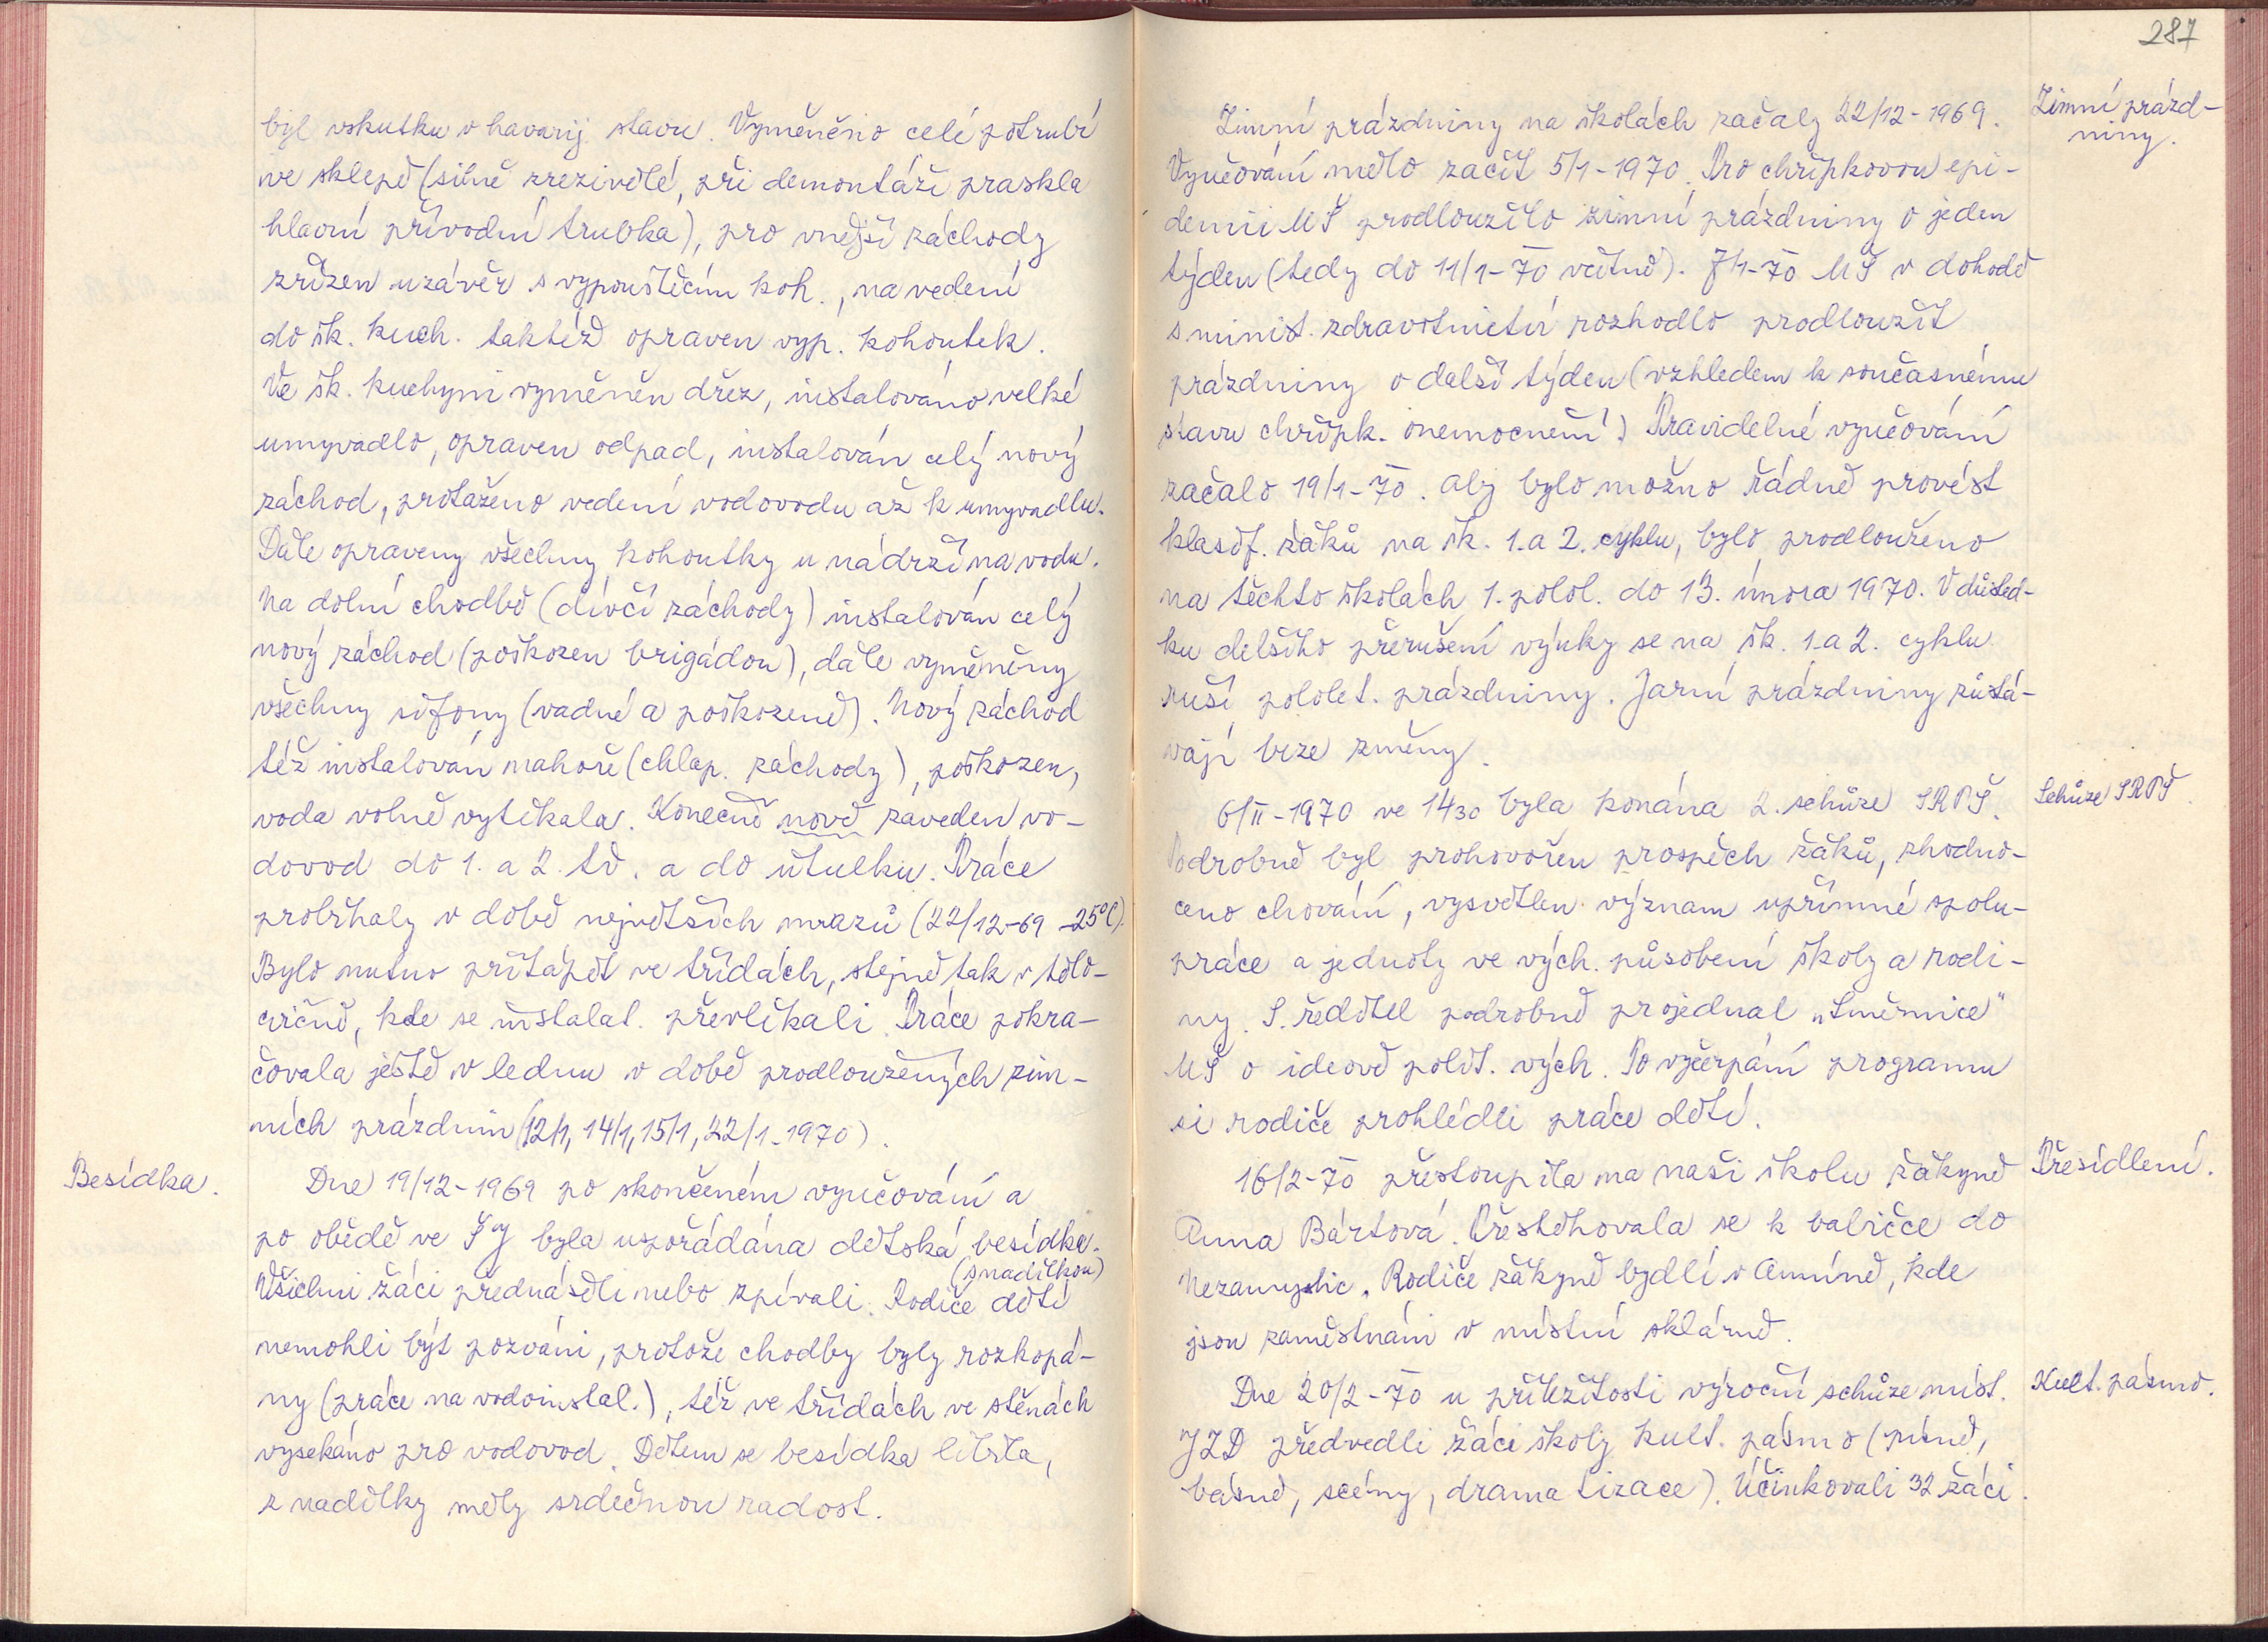 byl vskutku v havarij. stavu. Vyměněno celé potrubí
ve sklepě (silně zrezivělé, při demontáži praskla
hlavní přívodní trubka), pro vnější záchody
zřízen uzávěr s vypouštěcím koh., na vedení
do šk. kuch. taktéž opraven vyp. kohoutek.
Ve šk. kuchyni vyměněn dřez, instalováno velké
umyvadlo, opraven odpad, instalován celý nový
záchod, protaženo vedení vodovodu až k umyvadlu.
Dále opraveny všechny kohoutky u nádrží na vodu.
Na dolní chodbě (dívčí záchody) instalován celý
nový záchod (poškozen brigádou), dále vyměněny
všechny sifony (vadné a poškozené). Nový záchod
též instalován nahoře (chlap. záchody), poškozen,
voda volně vytékala. Konečně nově zaveden vo-
dovod do 1. a 2. tř. a do útulku. Práce
probíhaly v době největších mrazů (22/12-69 -25°C).
Bylo nutno přitápět ve třídách, stejně tak v tělo-
cvičně, kde se instalat. převlékali. Práce pokra-
čovala ještě v lednu v době prodloužených zim-
ních prázdnin (12/1, 14/1, 15/1, 22/1-1970).
Besídka.
Dne 19/12-1969 po skončeném vyučování a
po obědě ve ŠJ byla uspořádána dětská besídka.
(s nadílkou)
Všichni žáci přednášeli nebo zpívali. Rodiče dětí
nemohli být pozváni, protože chodby byly rozkopá-
ny (práce na vodoinstal.), též ve třídách ve stěnách
vysekáno pro vodovod. Dětem se besídka líbila,
z nadílky měly srdečnou radost.
287
Zimní prázd-
niny.
Zimní prázdniny na školách začaly 22/12-1969.
Vyučování mělo začít 5/1-1970. Pro chřipkovou epi-
demii MŠ prodloužilo zimní prázdniny o jeden
týden (tedy do 11/1-70 včetně). 7/1-70 MŠ v dohodě
s minist. zdravotnictví rozhodlo prodloužit
prázdniny o další týden (vzhledem k současnému
stavu chřipk. onemocnění). Pravidelné vyučování
začalo 19/1-70. Aby bylo možno řádně provést
klasif. žáků na šk. 1. a 2. cyklu, bylo prodlouženo
na těchto školách 1. polol. do 13. února 1970. V důsled-
ku delšího přerušení výuky se na šk. 1. a 2. cyklu
ruší pololet. prázdniny. Jarní prázdniny zůstá-
vají beze změny.
Schůze SRPŠ.
6/II-1970 ve 14 30 byla konána 2. schůze SRPŠ.
Podrobně byl prohovořen prospěch žáků, zhodno-
ceno chování, vysvětlen význam upřímné spolu-
práce a jednoty ve vých. působení školy a rodi-
ny. S. ředitel podrobně projednal „Směrnice"
MŠ o ideově polit. vých. Po vyčerpání programu
si rodiče prohlédli práce dětí.
Přesídlení.
16/2-70 přestoupila na naši školu žákyně
Anna Bártová. Přestěhovala se k babičce do
Nezamyslic. Rodiče žákyně bydlí v Anníně, kde
jsou zaměstnáni v místní sklárně.
Kult. pásmo.
Dne 20/2-70 u příležitosti výroční schůze míst.
JZD předvedli žáci školy kult. pásmo (písně,
básně, scény, dramatizace). Účinkovali 32 žáci.